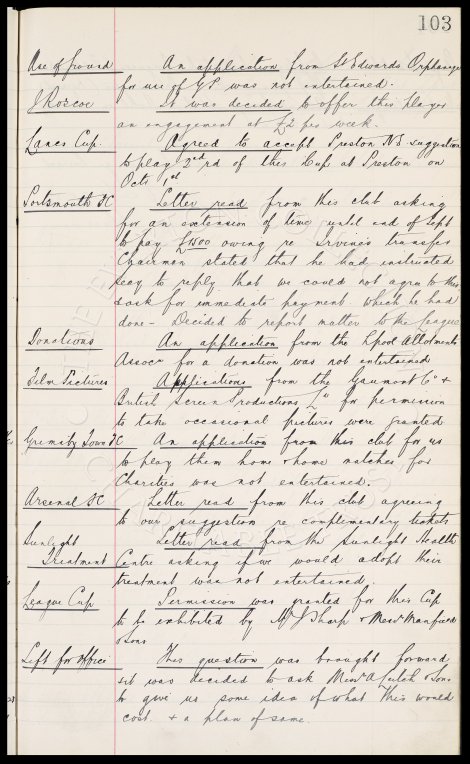 103
Use of ground An application from St Edwards Orphanage
for use of G.P. was not entertained.
J Roscoe It was decided to offer this player
an engagement at £2 per week.
Lancs Cup. Agreed to accept Preston N.E. suggestion
to play 2nd rd of this Cup at Preston on
Octr 1st
Portsmouth FC Letter read from this club asking
for an extension of time until end of Sept
to pay £1500 owing re Irvine's transfer
Chairman stated that he had instructed
Secy to reply that we could not agree to this
& ask for immediate payment which he had
done - Decided to report matter to the League
Donations An application from the Lpool Allotments
Assocn for a donation was not entertained
Film Pictures Applications from the Gaumont Co &
British Screen Productions Ld for permission
to take occasional pictures were granted
Grimsby Town FC An application from this club for us
to play them home & home matches for
Charities was not entertained.
Arsenal FC Letter read from this club agreeing
to our suggestion re complimentary tickets
Sunlight Letter read from the Sunlight Health
Treatment Centre asking if we would adopt their
treatment was not entertained.
League Cup Permission was granted for this Cup
to be exhibited by Mr J Sharp & Messrs Manfield
& Sons
Lift for office This question was brought forward
& it was decided to ask Messrs A & Sons
to give us some idea of what this would
cost. & a plan of same.